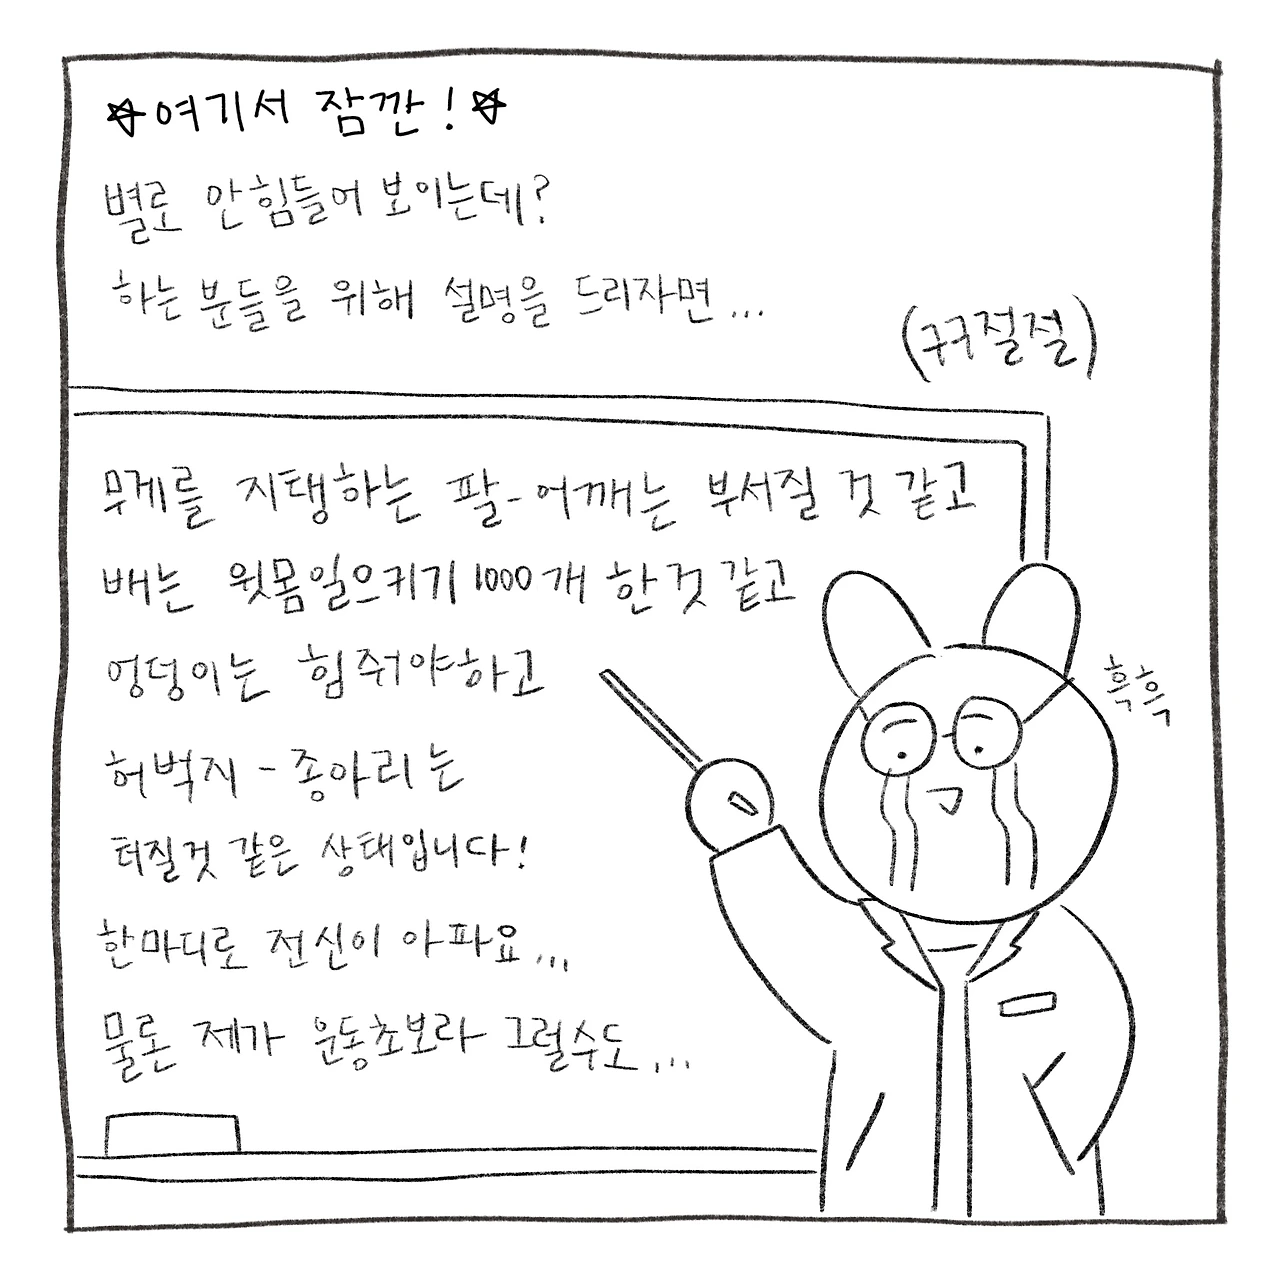 ☆여기서 잠깐!☆
별로 안힘들어 보이는데?
하는 분들을 위해 설명을 드리자면...
(구구절절)
무게를 지탱하는 팔-어깨는 부서질 것 같고
배는 윗몸일으키기 1000개 한것 같고
엉덩이는 힘줘야하고
흑흑
허벅지-종아리는
터질것 같은 상태입니다!
한마디로 전신이 아파요...
물론 제가 운동초보라 그럴수도...